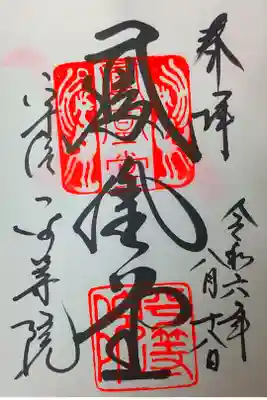 奉拝
令和六年
八月十八日
鳳凰堂
宇治
平等院